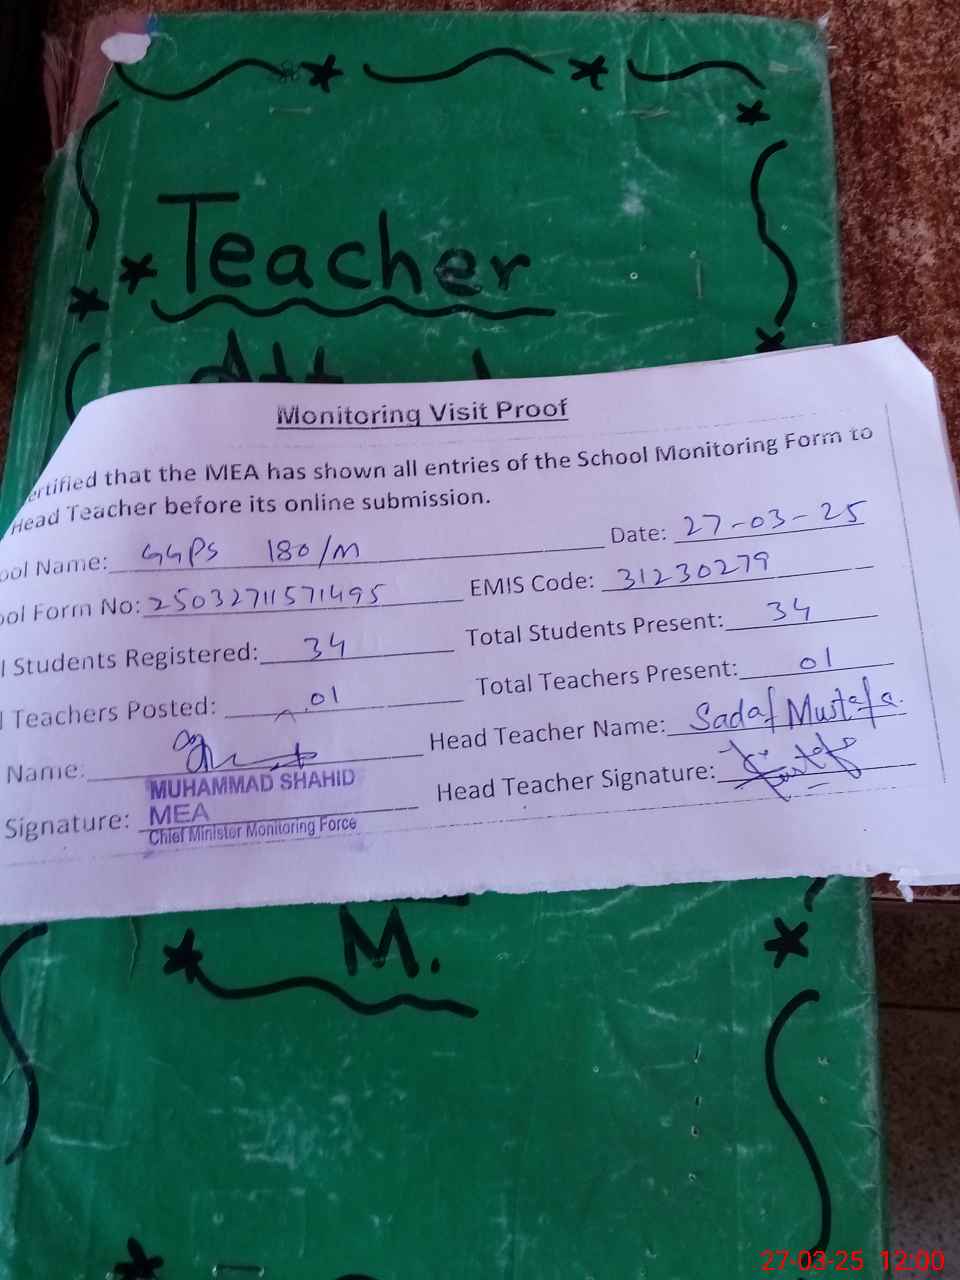 Teacher
Monitoring Visit Proof
ertified that the MEA has shown all entries of the School Monitoring Form to
Head Teacher before its online submission.
ool Name: GGPS 180/M Date: 27-03-25
ool Form No: 25032711571495 EMIS Code: 31230279
l Students Registered: 34 Total Students Present: 34
l Teachers Posted: 01 Total Teachers Present: 01
Name: Head Teacher Name: Sadaf Mustafa.
MUHAMMAD SHAHID
Signature: MEA Head Teacher Signature:
Chief Minister Monitoring Force
M.
27-03-25 12:00